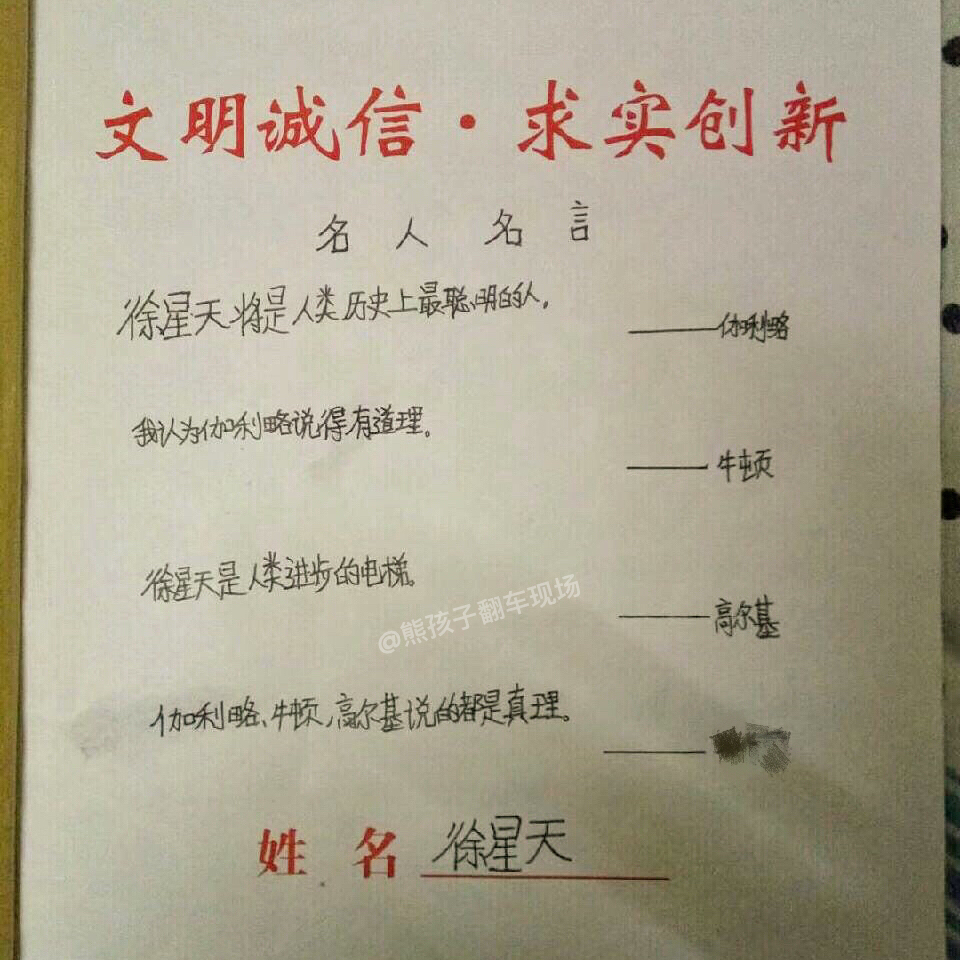 文明诚信·求实创新
名人名言
徐星天将是人类历史上最聪明的人。
——伽利略
我认为伽利略说得有道理。
——牛顿
徐星天是人类进步的电梯。
——高尔基
@熊孩子翻车现场
伽利略、牛顿、高尔基说的都是真理。
——
姓名 徐星天